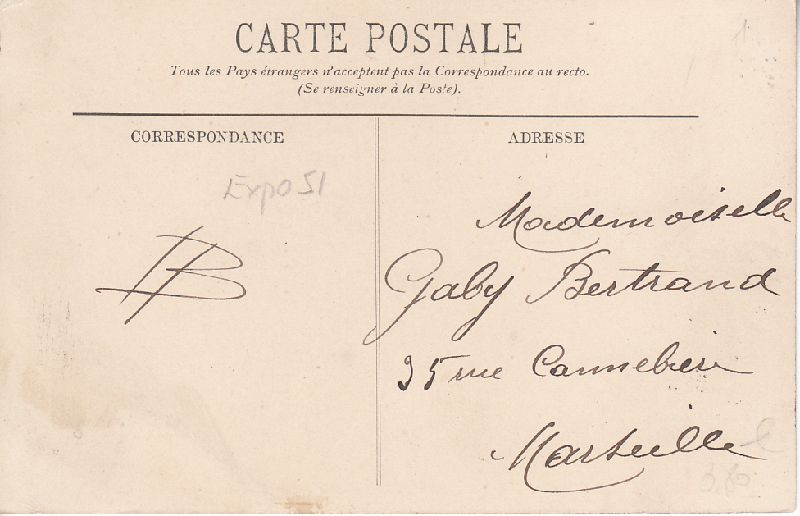 CARTE POSTALE
Tous les Pays étrangers n'acceptent pas la Correspondance au recto.
(Se renseigner à la Poste).
CORRESPONDANCE
ADRESSE
Expo 51
B
Mademoiselle
Gaby Bertrand
35 rue Cannebière
Marseille